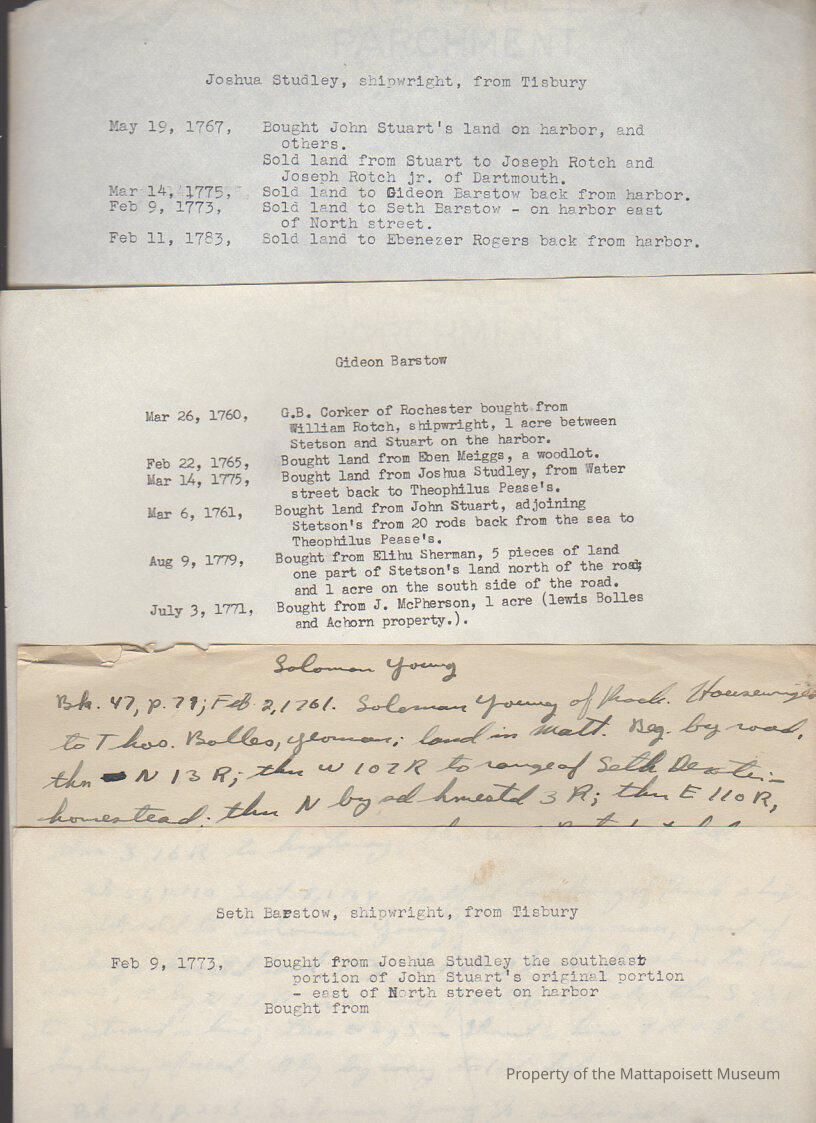 PARCHMENT
Joshua Studley, shipwright, from Tisbury
May 19, 1767, Bought John Stuart's land on harbor, and
others.
Sold land from Stuart to Joseph Rotch and
Joseph Rotch jr. of Dartmouth.
Mar 14, 1775, Sold land to Gideon Barstow back from harbor.
Feb 9, 1773, Sold land to Seth Barstow - on harbor east
of North street.
Feb 11, 1783, Sold land to Ebenezer Rogers back from harbor.
PARCHMENT
Gideon Barstow
Mar 26, 1760, G.B. Corker of Rochester bought from
William Rotch, shipwright, 1 acre between
Stetson and Stuart on the harbor.
Feb 22, 1765, Bought land from Eben Meiggs, a woodlot.
Mar 14, 1775, Bought land from Joshua Studley, from Water
street back to Theophilus Pease's.
Mar 6, 1761, Bought land from John Stuart, adjoining
Stetson's from 20 rods back from the sea to
Theophilus Pease's.
Aug 9, 1779, Bought from Elihu Sherman, 5 pieces of land
one part of Stetson's land north of the road;
and 1 acre on the south side of the road.
July 3, 1771, Bought from J. McPherson, 1 acre (lewis Bolles
and Achorn property.).
Solomon Young
Bk. 47, p. 79; Feb 2, 1761. Soloman Young of Roch. Housewright
to Thos. Bolles, yeoman; land in Matt. Beg. by road,
thn N 13 R; thn W 107 R to range of Seth Dexter
homestead; thn N by sd hmestd 3 R; thn E 110 R,
Seth Barstow, shipwright, from Tisbury
Feb 9, 1773, Bought from Joshua Studley the southeast
portion of John Stuart's original portion
- east of North street on harbor
Bought from
Property of the Mattapoisett Museum